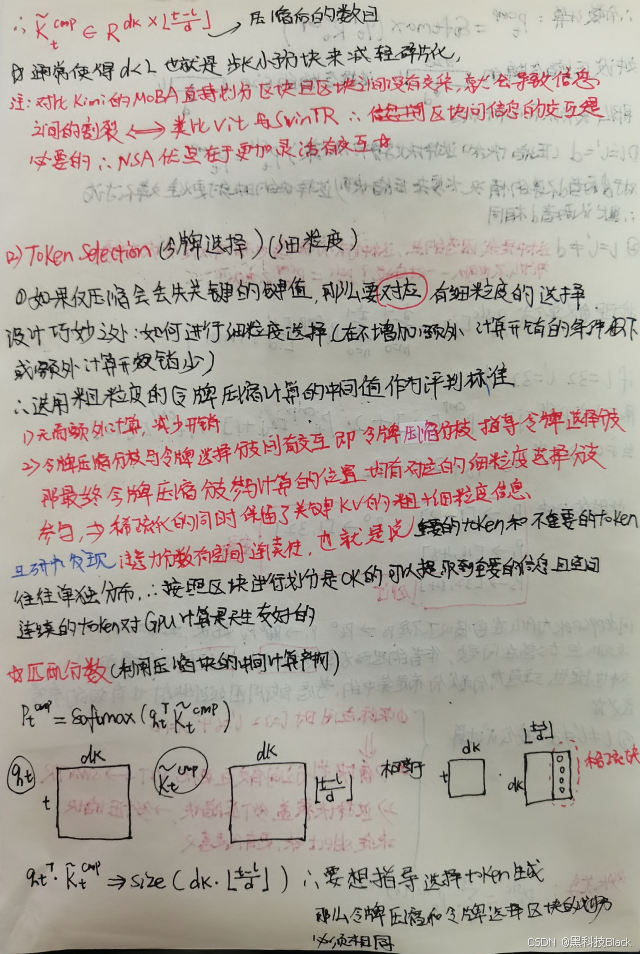 ∴ K̃_t^cmp ∈ R^{dk × ⌊(t-l)/d⌋} → 压缩后的数目
通常使得 d<l 也就是步长小于块来减轻碎片化,
注: 对比Kimi的MOBA直接划分区块且区块之间没有交集, 总会导致信息
之间的割裂 ⟷ 类比Vit与SwinTR ∴ 区块间信息的交互是
必要的 ∴ NSA优点在于更加灵活有交互☆
(2) Token Selection (令牌选择) (细粒度)
① 如果仅压缩会丢失关键的键值, 那么要对应有细粒度的选择
设计巧妙之处: 如何进行细粒度选择 (在不增加额外计算开销的条件下
或额外计算开销少)
∴ 选用粗粒度的令牌压缩计算的中间值作为评判标准
1) 无需额外计算, 减少开销
2) 令牌压缩分支与令牌选择分支间有交互 即令牌压缩分支指导令牌选择分支
那最终令牌压缩分支参与计算的位置 均有对应的细粒度选择分支
参与, ⇒ 稀疏化的同时保留了关键KV的粗+细粒度信息.
且研究发现 注意力分数有空间连续性, 也就是说 重要的token和不重要的token
往往单独分布, ∴ 按照区块进行划分是OK的 可以提取到重要的信息 且空间
连续的token对GPU计算是天生友好的
☆匹配分数 (利用压缩块的中间计算产物)
P_t^cmp = Softmax (q_t^T K̃_t^cmp)
q_t dk t K̃_t^cmp dk ⌊(t-l)/d⌋ 相当于 dk dk ⌊(t-l)/d⌋
q_t^T · K̃_t^cmp ⇒ size (dk · ⌊(t-l)/d⌋) ∴ 要想指导选择token生成
那么令牌压缩和令牌选择区块的
必须相同
CSDN @黑科技Black